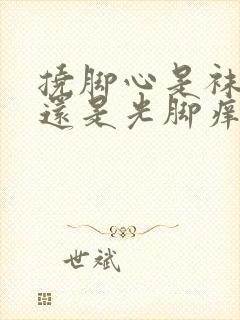 撓脚心是袜
還是光脚痒
世斌